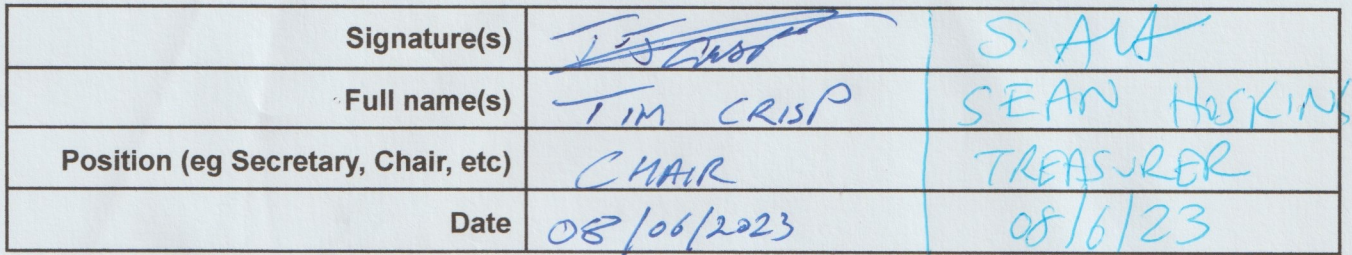 Signature(s)
Full name(s) TIM CRISP SEAN HOSKIN
Position (eg Secretary, Chair, etc) CHAIR TREASURER
Date 08/06/2023 08/6/23